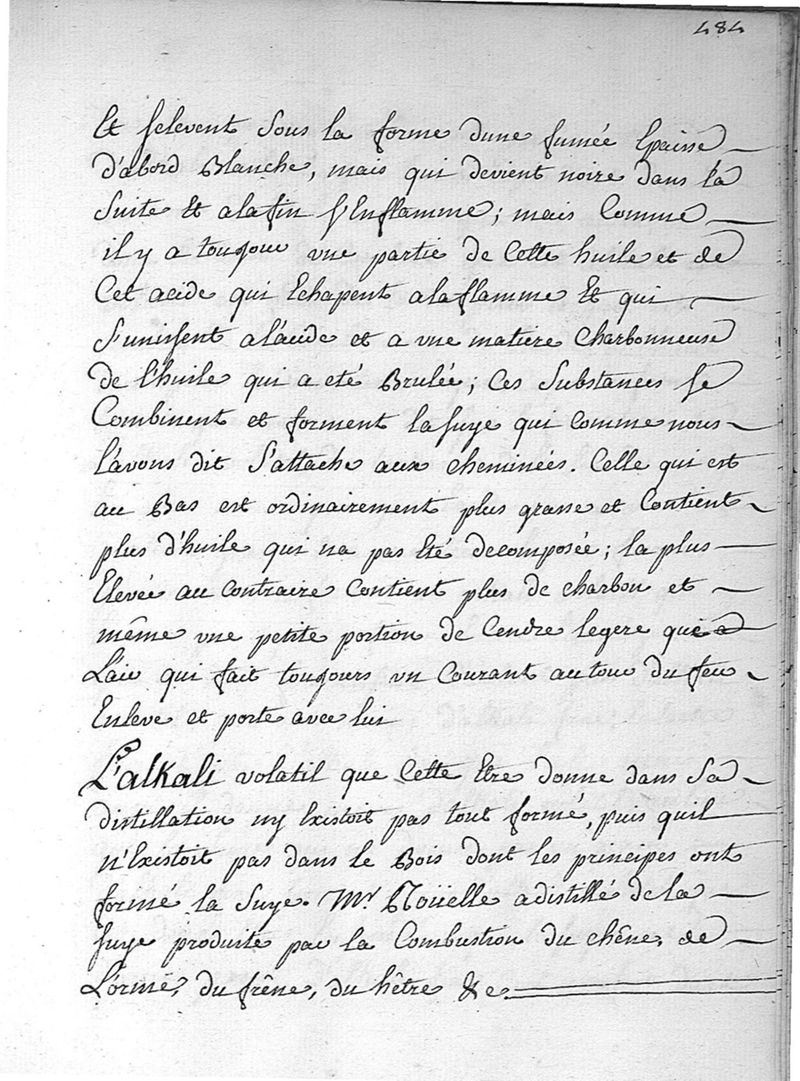 484
Et s'elevent sous la forme dune fumée Epaisse
d'abord Blanche, mais qui devient noire dans la
Suite Et alafin s'Enflamme; mais Comme
il y a toujour vne partie de Cette huile et de
Cet acide qui Echapent alaflamme Et qui
s'unissent alacide et a vne matiere Charbonneuse
de l'huile qui a eté Brulée; Ces Substances se
Combinent et forment lasuye qui Comme nous
l'avons dit s'attache aux cheminées. Celle qui est
au Bas est ordinairement plus grasse et Contient
plus d'huile qui na pas Eté decomposée; la plus
Elevée au contraire Contient plus de charbon et
même vne petite portion de Cendre legere que
L'air qui fait toujours vn Courant autour du feu
Enleve et porte avec lui
L'alkali volatil que Cette Etre donne dans Sa
distillation ny Existoit pas tout formé, puis quil
n'Existoit pas dans le Bois dont les principes ont
formé la Suye. Mr Roüelle adistillé de la
suye produite par la Combustion du chêne, de
L'orme, du frêne, du hêtre &c.